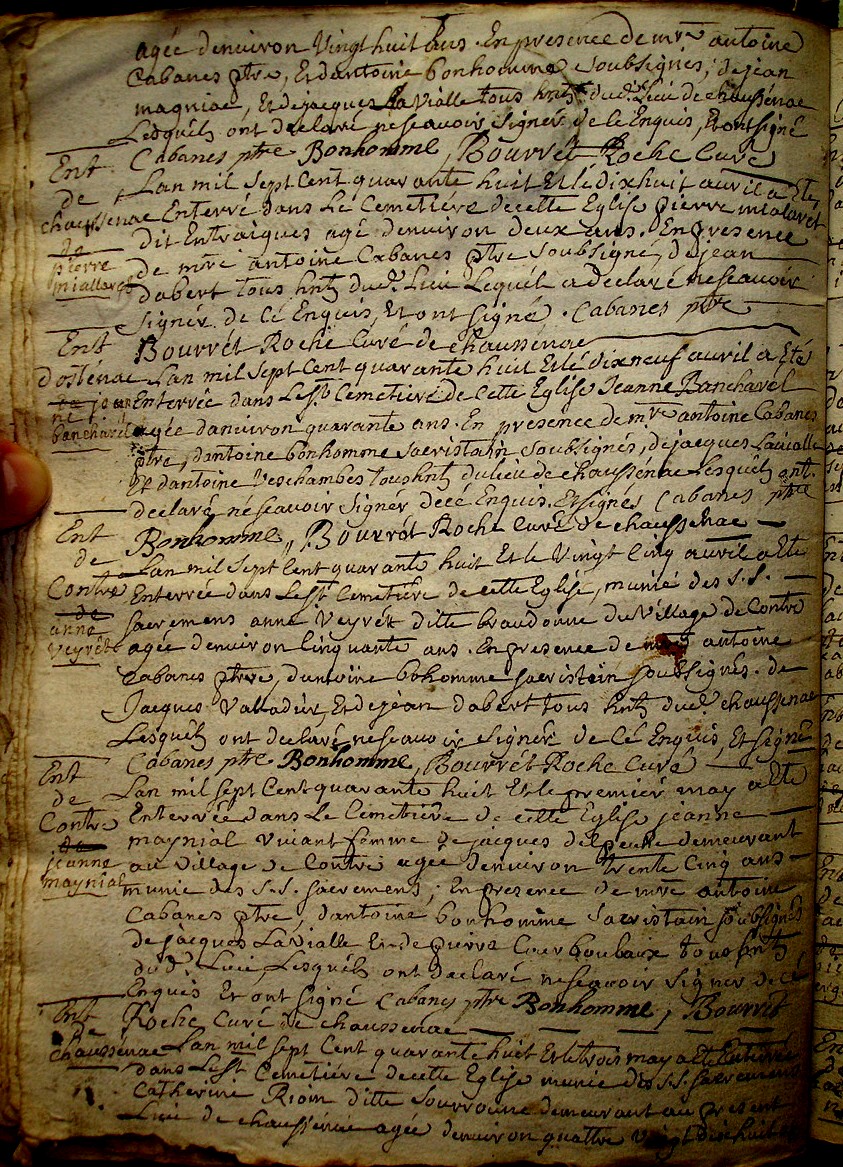 agée denuiron Vingt huit ans. En presence de mre antoine
Cabanes ptre, Et dantoine bonhomme soubsignés, de jean
magniac, Et de jacques Lavialle tous hnts du d. Lieu de chaussenac
Lesquels ont declaré ne scavoir signer de ce Enquis, Et ont signé
Cabanes ptre Bonhomme, Bourret Roche Curé
Ent
de
chaussenac
de
pierre
miallaret
Lan mil sept Cent quarante huit Et le dixhuit auril a Eté
Enterré dans Le Cemetiere de cette Eglise pierre mialaret
dit Entraigues agé denuiron deux ans. En presence
de mre antoine Cabanes ptre soubsigné, de jean
dabert tous hnts du d. Lieu Lequel a declaré ne scavoir
signer de Cé Enquis, Et ont signé. Cabanes ptre
Bourret Roche Curé de chaussenac
Ent
dostenac
de jeanne
bancharel
Lan mil sept Cent quarante huit Et le dixneuf auril a Eté
Enterrée dans Le st Cemetiere de Cette Eglise Jeanne Bancharel
agée danuiron quarante ans. En presence de mre antoine Cabanes
ptre, dantoine bonhomme sacristain soubsignés, de jacques Lavialle
Et dantoine Veschambes tous hnts du lieu de chaussenac Lesquels ont
declaré ne scavoir signer de cé Enquis. Et signés Cabanes ptre
Bonhomme, Bourret Roche Curé de chaussenac
Ent
de
Contre
de
anne
Veyret
Lan mil sept Cent quarante huit Et le Vingt Cinq auril a Eté
Enterrée dans Le st Cemetiere de cette Eglise, munie des S.S.
sacremens anne Veyret ditte braudonne du Village de Contre
agée denuiron Cinquante ans. En presence de mre antoine
Cabanes ptre, dantoine bohomme sacristain soubsignés. de
Jacques Valladier, Et de jean dabert tous hnts du d. chaussenac
Lesquels ont declaré ne scavoir signer de Cé Enquis, Et signé
Cabanes ptre Bonhomme, Bourret Roche Curé
Ent
de
Contre
de
jeanne
maynial
Lan mil sept Cent quarante huit Et le premier may a Eté
Enterrée dans Le Cemetiere de cette Eglise jeanne
maynial Viuant femme de jacques delpeuch demeurant
au Village de Contre agée denuiron trente Cinq ans
munie des S.S. sacremens, En presence de mre antoine
Cabanes ptre, dantoine bonhomme sacristain soubsignés
de jacques Lavialle Et de pierre Courboulaix tous hnts
du d. Lieu, Lesquels ont declaré ne scavoir signer de Cé
Enquis Et ont signé Cabanes ptre Bonhomme, Bourret
Roche Curé de chaussenac
Ent
de
chaussenac
Lan mil sept Cent quarante huit Et le trois may a Eté Enterrée
dans Le st Cemetiere de cette Eglise munie des S.S. sacremens
Catherine Rioin ditte sourronne demeurant au present
Lieu de chaussenac agée denuiron quattre Vingt dix huit